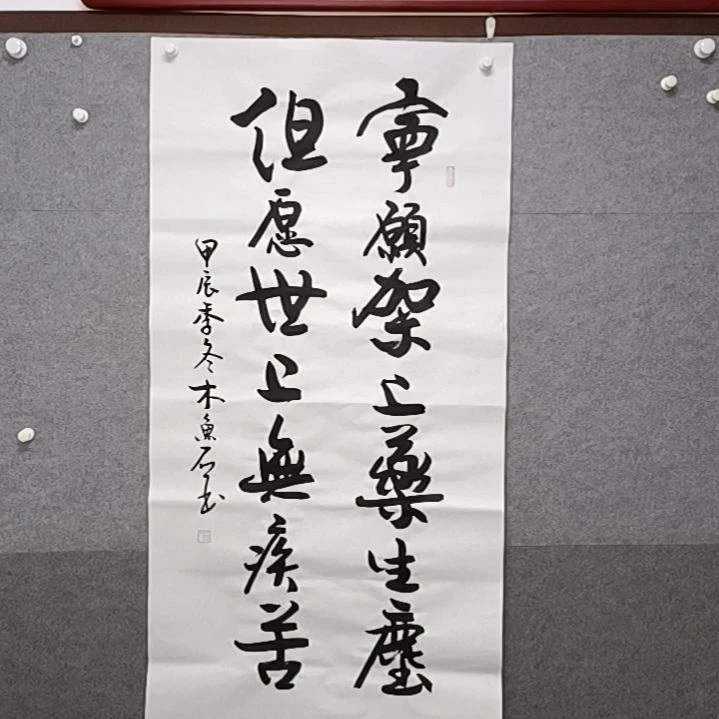 寧願架上藥生塵
但愿世上無疾苦
甲辰季冬木魚石書